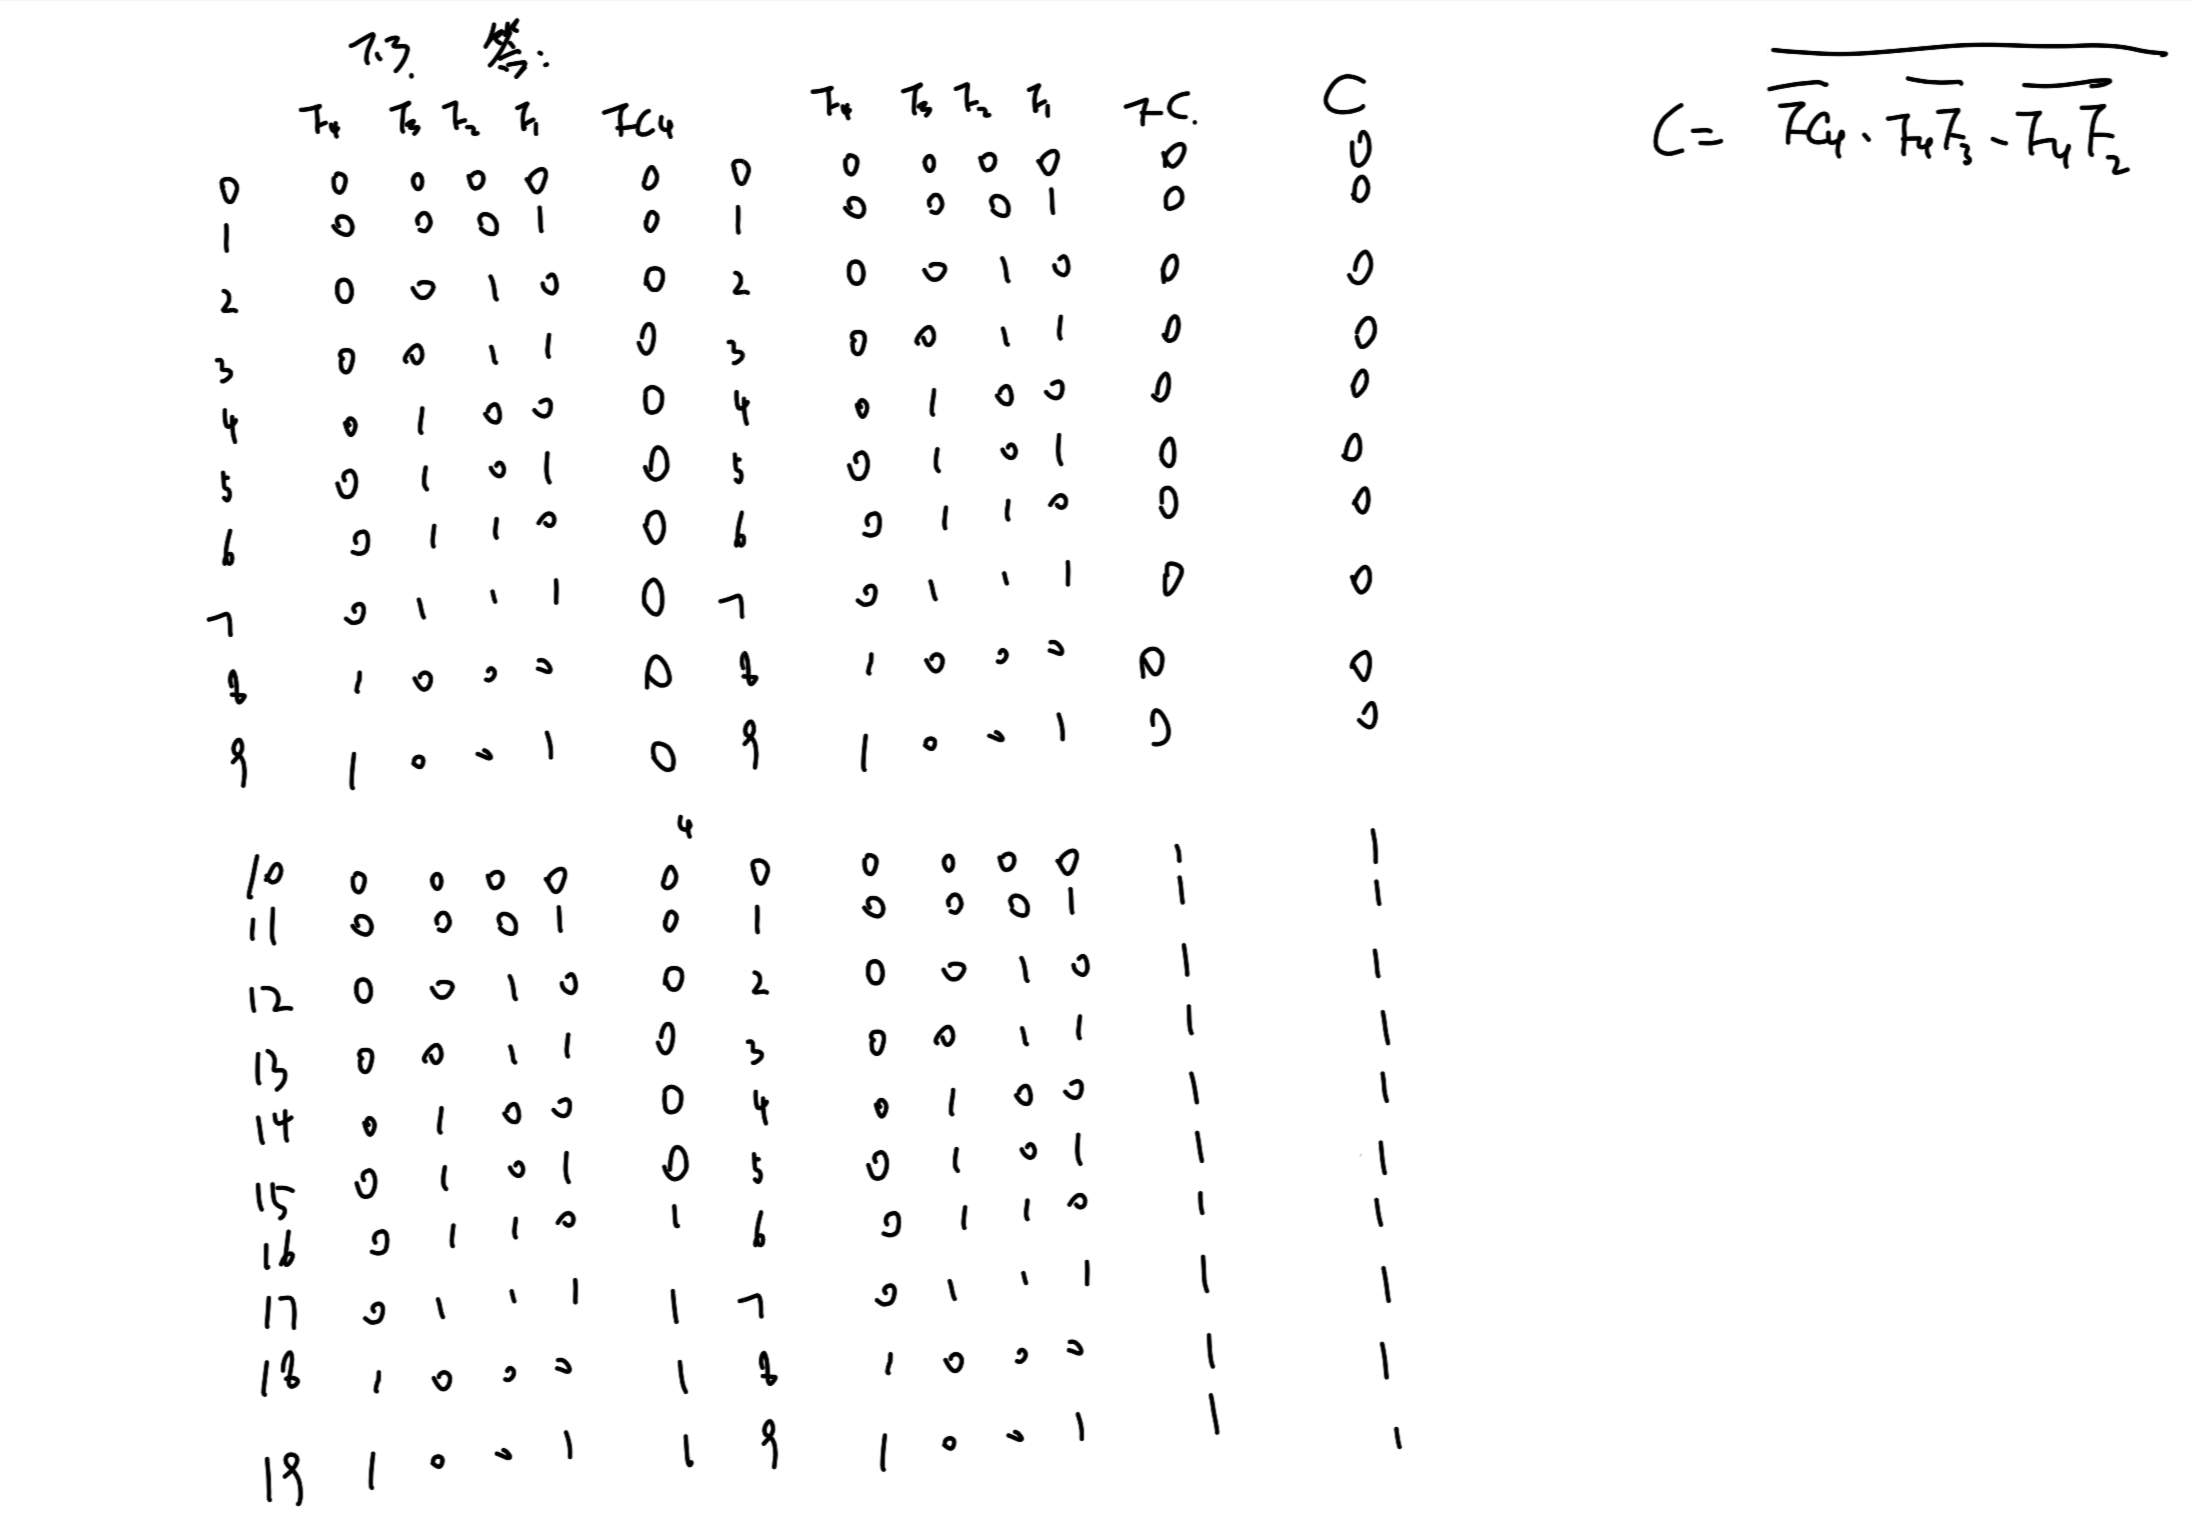 7.3. 答:
F₄ F₃ F₂ F₁ FC₄ F₄ F₃ F₂ F₁ FC. C
C = \overline{\overline{FC₄} · \overline{F₄F₃} · \overline{F₄F₂}}
0 0 0 0 0 0 0 0 0 0 0 0 0
1 0 0 0 1 0 1 0 0 0 1 0 0
2 0 0 1 0 0 2 0 0 1 0 0 0
3 0 0 1 1 0 3 0 0 1 1 0 0
4 0 1 0 0 0 4 0 1 0 0 0 0
5 0 1 0 1 0 5 0 1 0 1 0 0
6 0 1 1 0 0 6 0 1 1 0 0 0
7 0 1 1 1 0 7 0 1 1 1 0 0
8 1 0 0 0 0 8 1 0 0 0 0 0
9 1 0 0 1 0 9 1 0 0 1 0 0
4
10 0 0 0 0 0 0 0 0 0 0 1 1
11 0 0 0 1 0 1 0 0 0 1 1 1
12 0 0 1 0 0 2 0 0 1 0 1 1
13 0 0 1 1 0 3 0 0 1 1 1 1
14 0 1 0 0 0 4 0 1 0 0 1 1
15 0 1 0 1 0 5 0 1 0 1 1 1
16 0 1 1 0 1 6 0 1 1 0 1 1
17 0 1 1 1 1 7 0 1 1 1 1 1
18 1 0 0 0 1 8 1 0 0 0 1 1
19 1 0 0 1 1 9 1 0 0 1 1 1